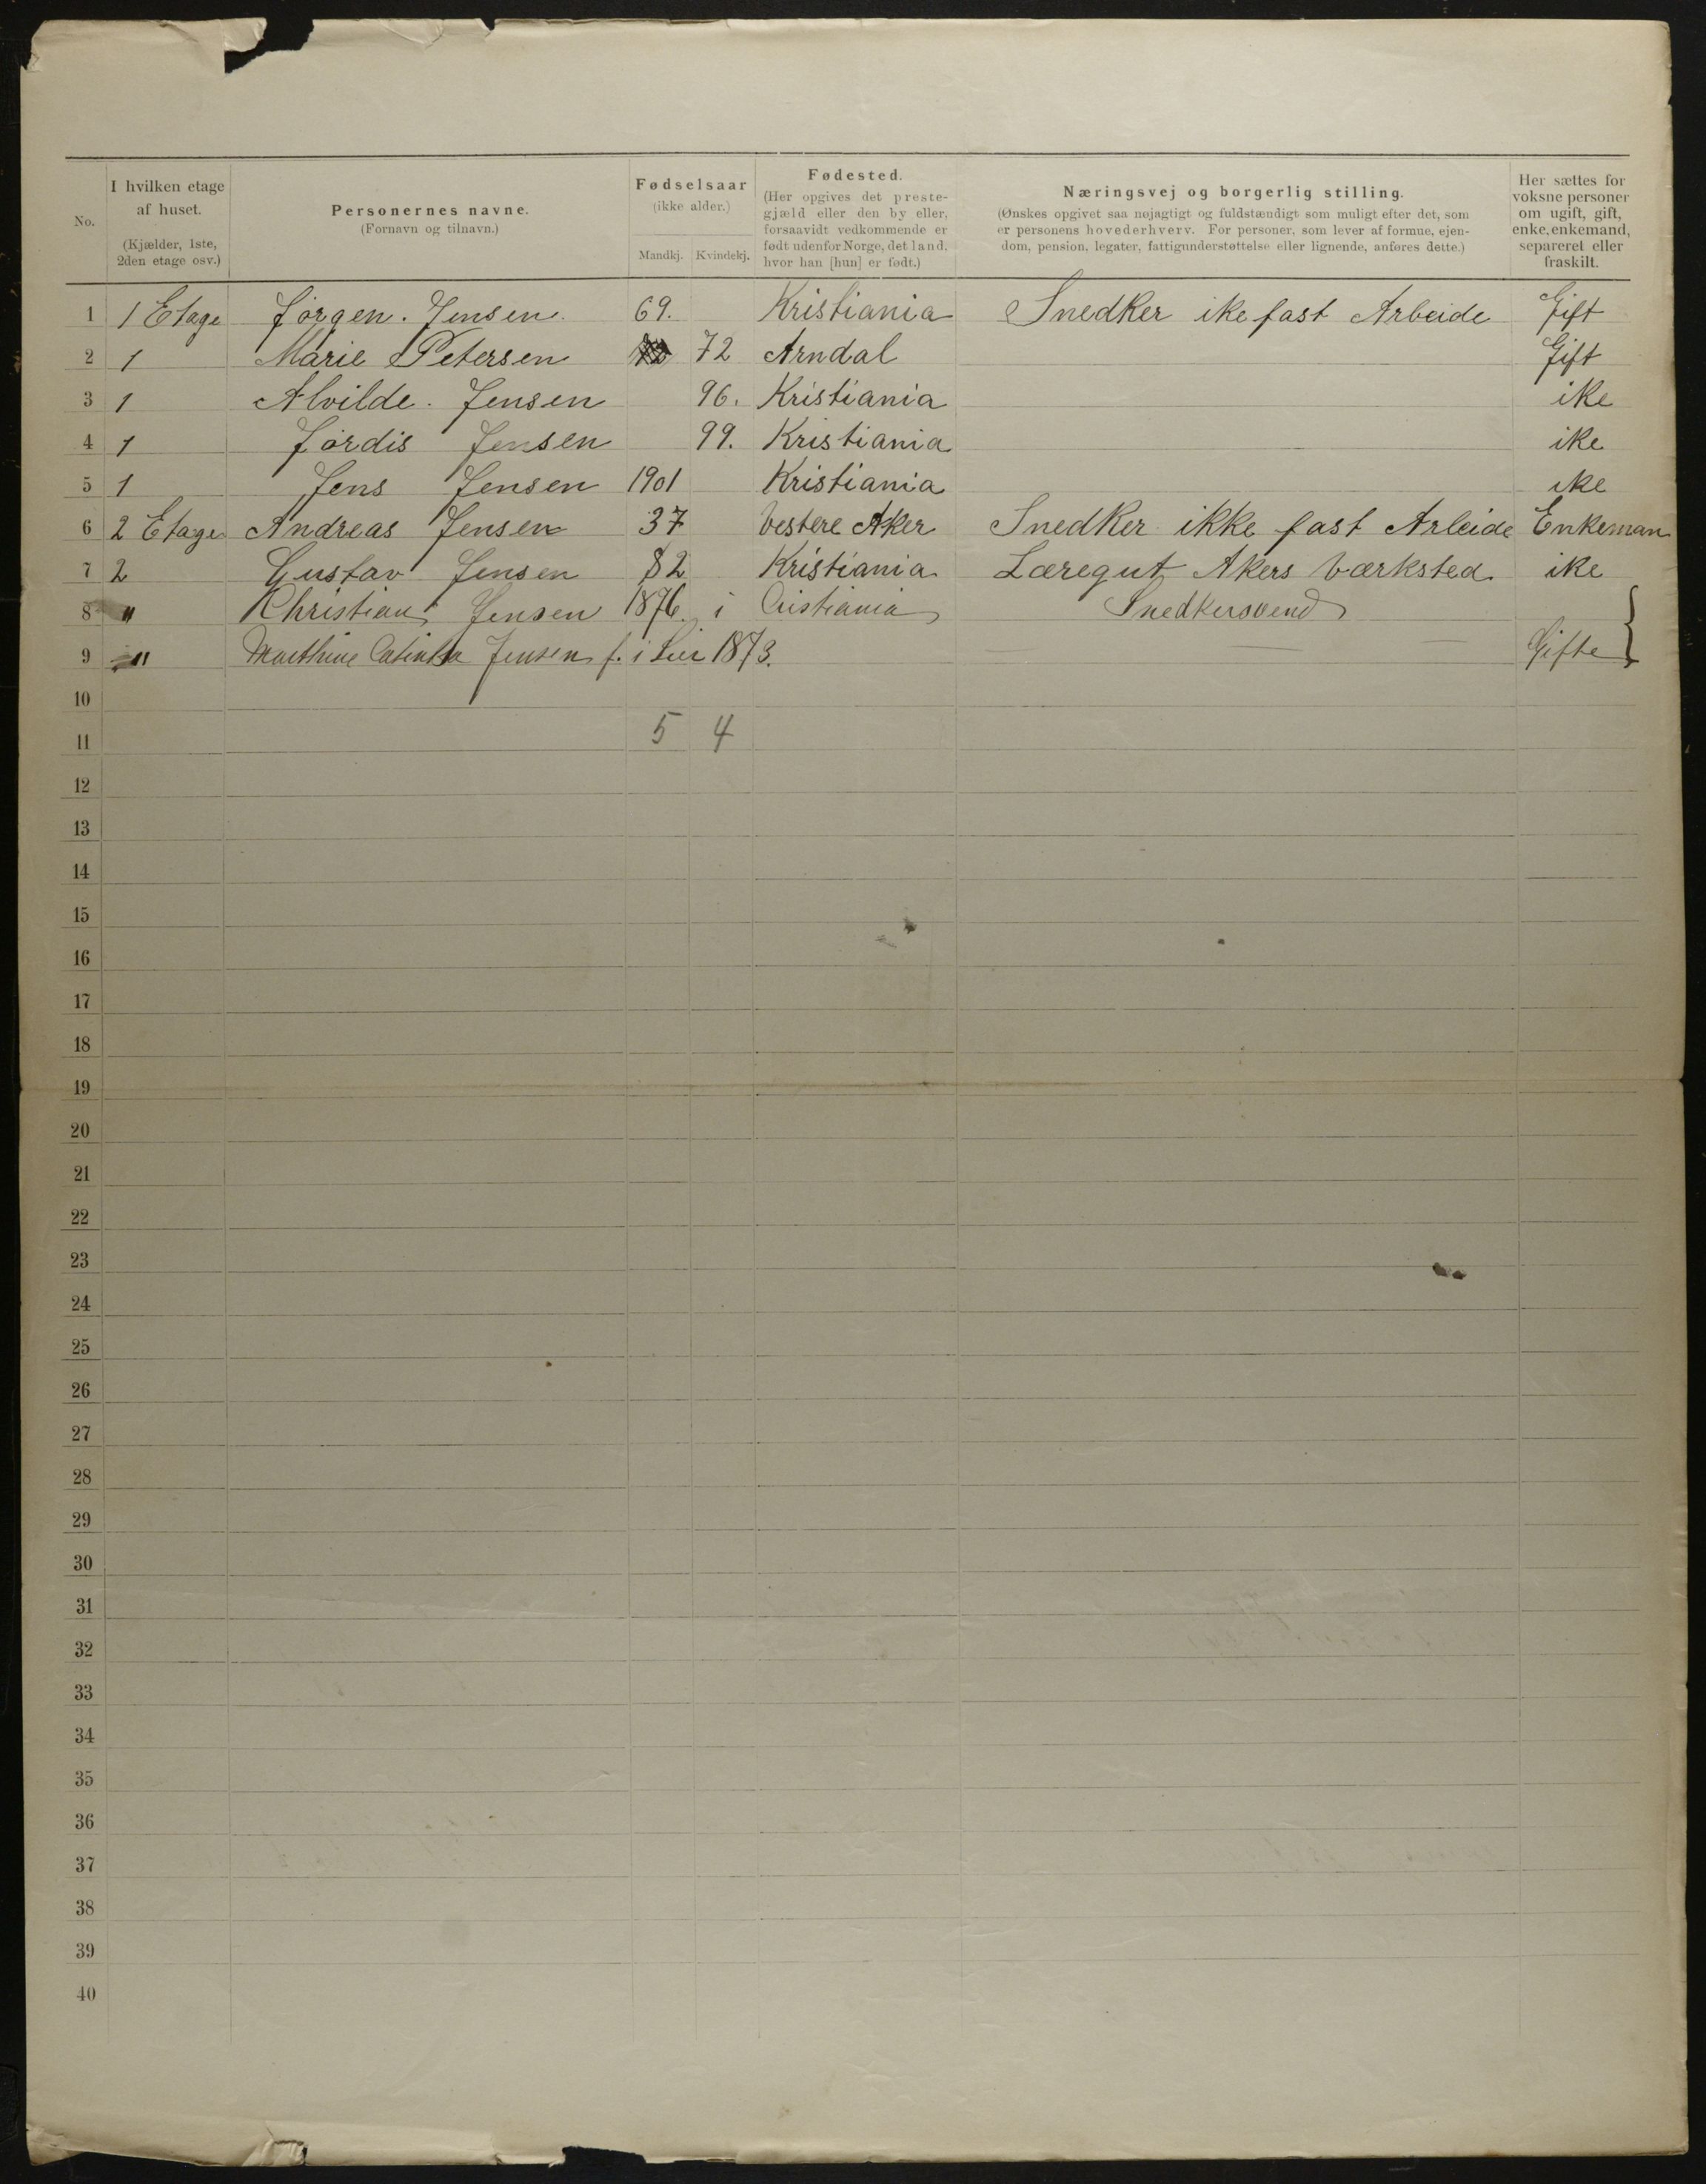 No.
I hvilken etage af huset. (Kjælder, 1ste, 2den etage osv.)
Personernes navne. (Fornavn og tilnavn.)
Fødselsaar (ikke alder.) Mandkj. Kvindekj.
Fødested. (Her opgives det prestegjæld eller den by eller, forsaavidt vedkommende er født udenfor Norge, det land, hvor han [hun] er født.)
Næringsvej og borgerlig stilling. (Ønskes opgivet saa nøjagtigt og fuldstændigt som muligt efter det, som er personens hovederhverv. For personer, som lever af formue, ejendom, pension, legater, fattigunderstøttelse eller lignende, anføres dette.)
Her sættes for voksne personer om ugift, gift, enke, enkemand, separeret eller fraskilt.
1 1 Etage Jørgen. Jensen. 69. Kristiania Snedker ike fast Arbeide Gift
2 1 Marie Petersen 72 Arndal Gift
3 1 Alvilde. Jensen 96. Kristiania ike
4 1 Jørdis Jensen 99. Kristiania ike
5 1 Jens Jensen 1901 Kristiania ike
6 2 Etage Andreas Jensen 37 Vestere Aker Snedker ikke fast Arbeide Enkeman
7 2 Gustav Jensen 82 Kristiania Læregut Akers Værksted ike
8 " Khristian Jensen 1876. i Cristiania Snedkersvend
9 " Jensen f. i Lier 1873. Gifte
10
11 5 4
12
13
14
15
16
17
18
19
20
21
22
23
24
25
26
27
28
29
30
31
32
33
34
35
36
37
38
39
40